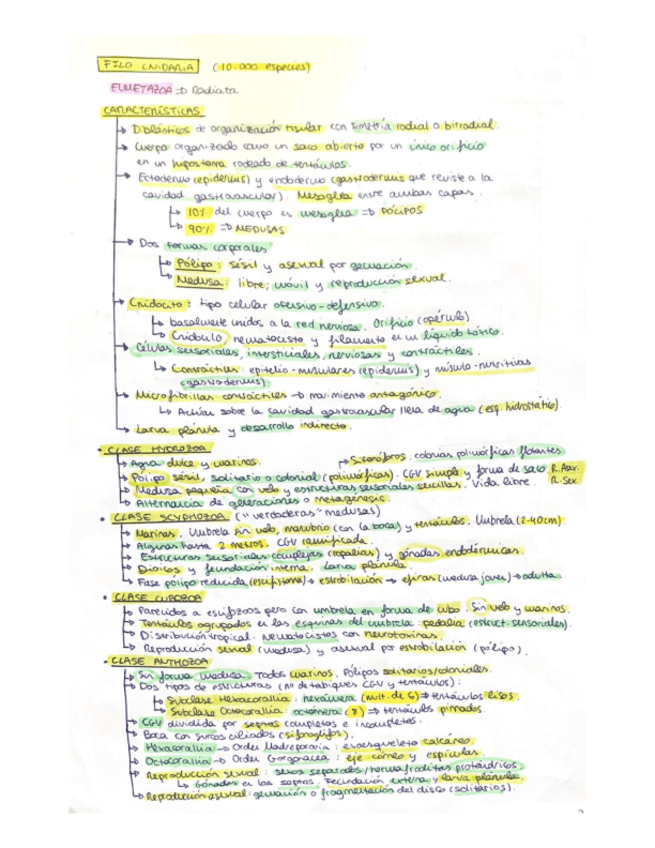 FILO CNIDARIA (10.000 especies)
EUMETAZOA => Radiata
CARACTERÍSTICAS
Diblásticos de organización tisular con simetría radial o birradial.
Cuerpo organizado como un saco abierto por un único orificio
en un hipostoma rodeado de tentáculos.
Ectodermo (epidermis) y endodermo (gastrodermis que reviste a la
cavidad gastrovascular). Mesoglea entre ambas capas.
10% del cuerpo es mesoglea => PÓLIPOS
90% => MEDUSAS
Dos formas corporales
Pólipo: sésil y asexual por gemación.
Medusa: libre, móvil y reproducción sexual.
Cnidocito: tipo celular ofensivo-defensivo.
basalmente unidos a la red nerviosa. Orificio (opérculo)
Cnidoulo, nematocisto y filamento en un líquido tóxico.
Células sensoriales, intersticiales, nerviosas y contráctiles.
Contráctiles: epitelio-musculares (epidermis) y músculo-nutritivas
(gastrodermis).
Microfibrillas contráctiles -> movimiento antagónico.
Actúan sobre la cavidad gastrovascular llena de agua (esq. hidrostático).
Larva plánula y desarrollo indirecto.
• CLASE HYDROZOA
Agua dulce y marinos. -> Sifonóforos: colonias polimórficas flotantes
Pólipo sésil, solitario o colonial (polimórficas). CGV simple y forma de saco R. Asex.
Medusa pequeña con velo y estructuras sensoriales sencillas. Vida libre. R. Sex.
Alternancia de generaciones o metagénesis.
• CLASE SCYPHOZOA ("verdaderas" medusas)
Marinas. Umbrela sin velo, manubrio (con la boca) y tentáculos. Umbrela (2-40cm)
Algunas hasta 2 metros. CGV ramificada.
Estructuras sensoriales complejas (ropalias) y gónadas endodérmicas.
Dioicos y fecundación interna. Larva plánula.
Fase pólipo reducida (escifistoma) -> estrobilación -> efiras (medusa joven) -> adulta
• CLASE CUBOZOA
Parecidos a escifozoos pero con umbrela en forma de cubo. Sin velo y marinos.
Tentáculos agrupados en las esquinas del umbrela: pedalia (estruct. sensoriales).
Distribución tropical. Nematocistos con neurotoxinas.
Reproducción sexual (medusa) y asexual por estrobilación (pólipo).
• CLASE ANTHOZOA
Sin forma medusa. Todos marinos. Pólipos solitarios/coloniales.
Dos tipos de estructuras (nº de tabiques CGV y tentáculos):
Subclase Hexacorallia: hexámera (mult. de 6) => tentáculos lisos.
Subclase Octocorallia: octómera (8) => tentáculos pinnados.
CGV dividida por septos completos e incompletos.
Boca con surcos ciliados (sifonoglifos).
Hexacorallia -> Orden Madreporaria: exoesqueleto calcáreo.
Octocorallia -> Orden Gorgonacea: eje córneo y espículas.
Reproducción sexual: sexos separados/hermafroditas protándricos.
Gónadas en los septos. Fecundación externa y larva plánula.
Reproducción asexual: gemación o fragmentación del disco (solitarios).